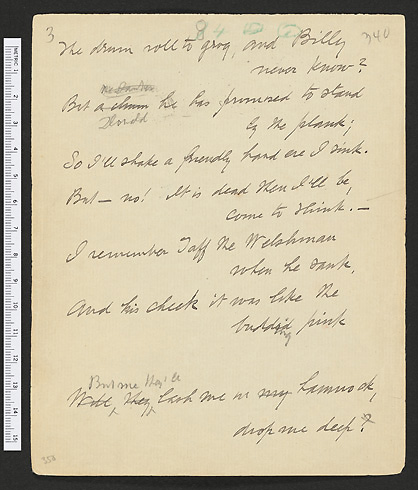 3
340
The drum roll to grog, and Billy
never know?
But a chum he has promised to stand
Donald
by the plank;
So I'll shake a friendly hand ere I sink.
But — no! It is dead then I'll be,
come to think. —
I remember Taff the Welshman
when he sank,
And his cheek it was like the
budding pink
But me they'll
Will they lash me in my hammock,
drop me deep?
358